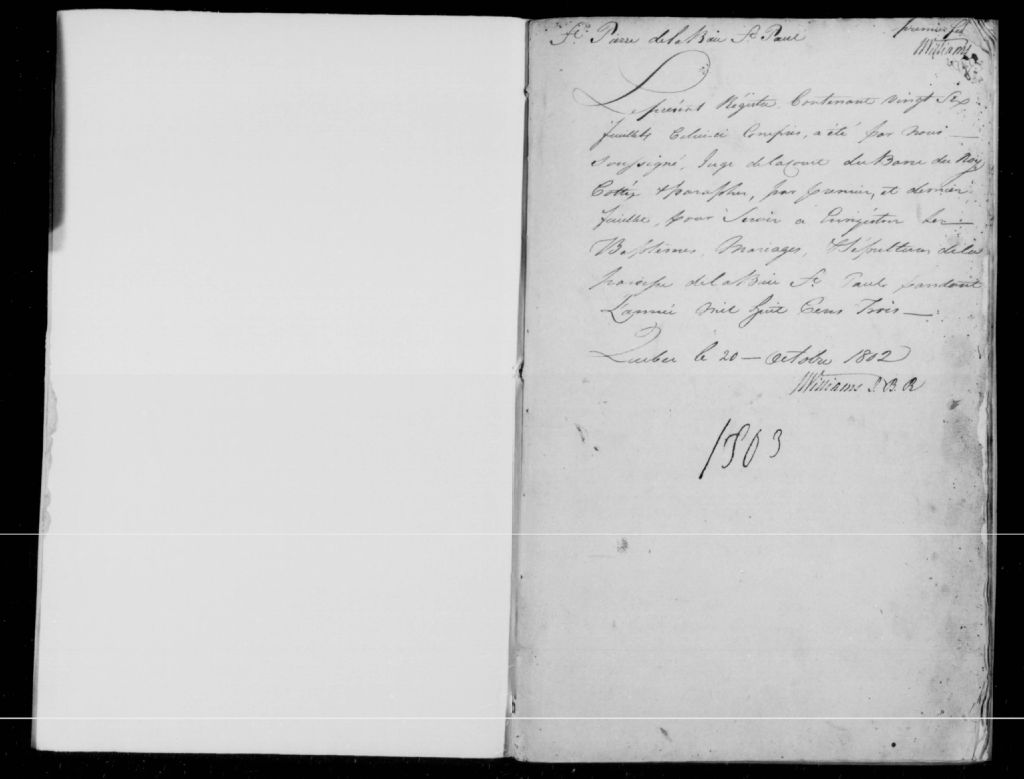 St. Pierre de la Baie St. Paul
premier feuil
Williams
Le présent Régistre Contenant vingt Six
feuillets Celui-ci Compris, a été par Nous
Soussigné, Juge de la Cour du Banc du Roy
Cottéz & paraphés, par premier, et dernier
feuillet, pour Servir à Enrégistrer les
Baptêmes, Mariages, & Sépultures de la
paroisse de la Baie St. Paul, pendant
L'année Mil huit Cens Trois
Québec le 20 Octobre 1802
Williams J. B. R
1803